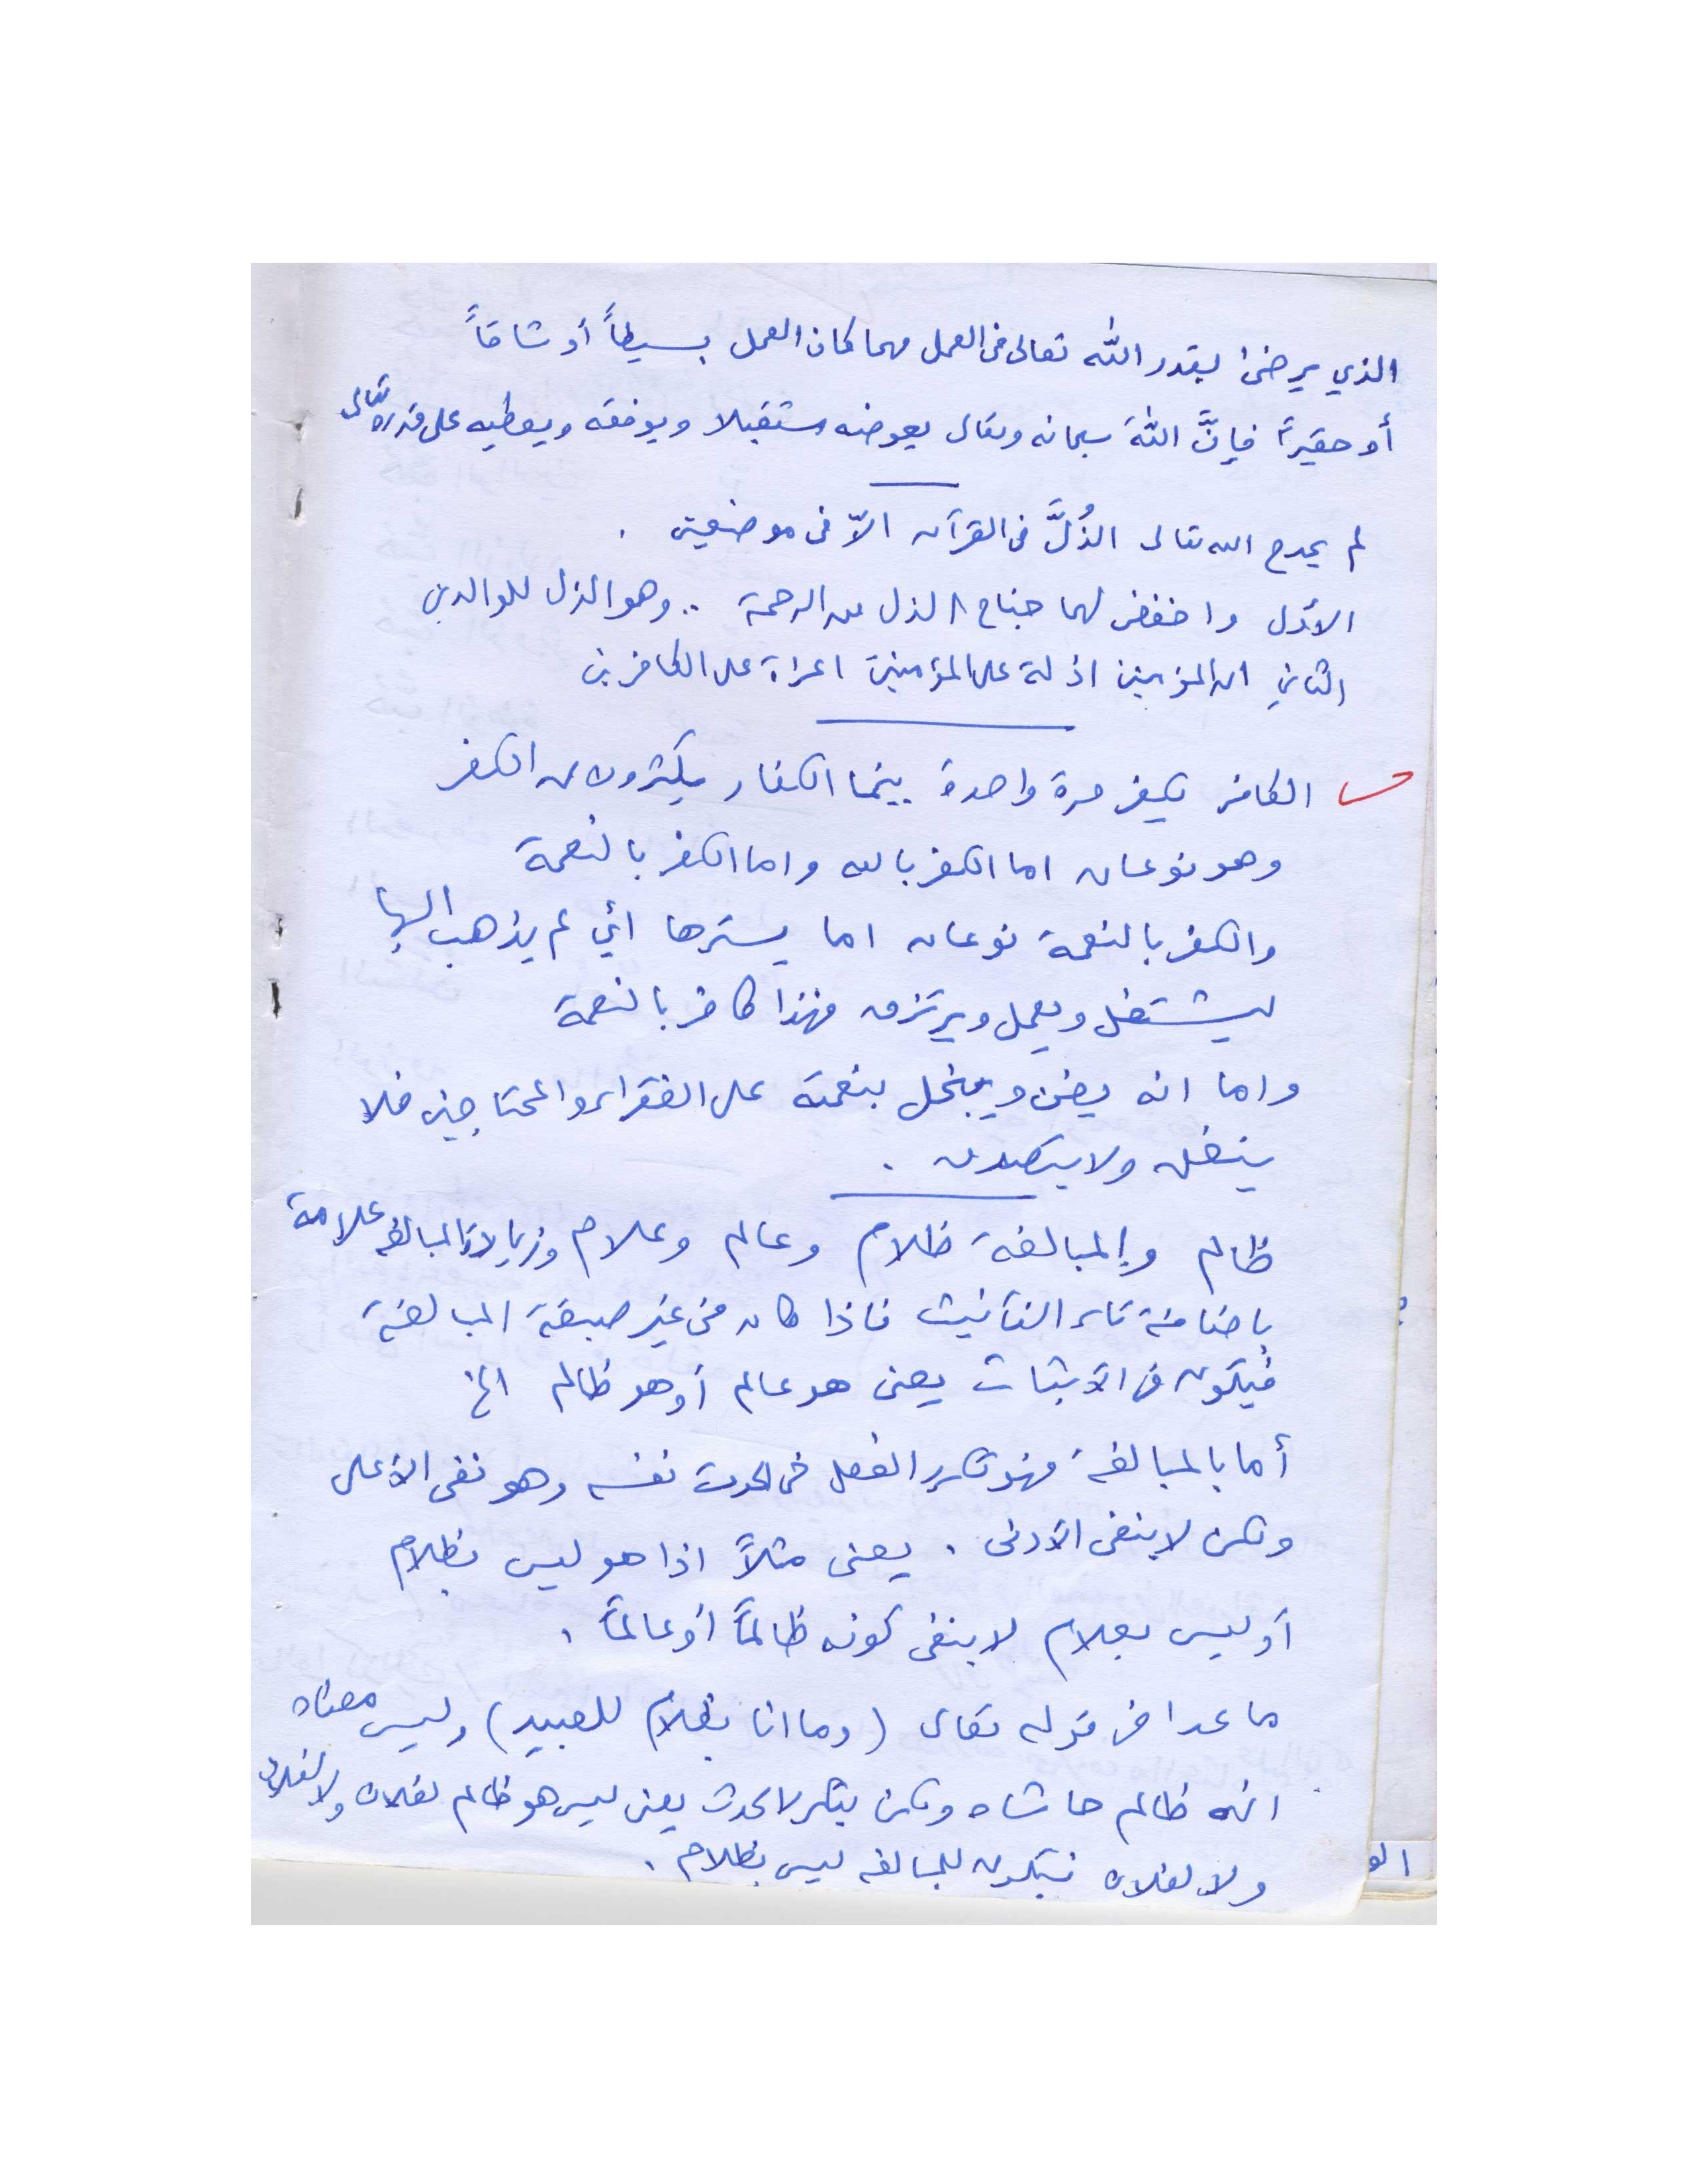 الذي يرضىٰ بقدر الله تعالى في العمل مهما كان العمل بسيطاً أو شاقاً
أو حقيراً فإنَّ اللهَ سبحانه وتعالى يعوضه مستقبلا ويوفقه ويعطيه على قدره تعالى
لم يمدح الله تعالى الذُلَّ في القرآن الاّ في موضعين .
الأول واخفض لهما جناح الذل من الرحمة .. وهو الذل للوالدين
الثاني المؤمنين اذلة على المؤمنين اعزة على الكافرين
الكافر يكفر مرة واحدة بينما الكفار يكثرون من الكفر
وهو نوعان اما الكفر بالله واما الكفر بالنعمة
والكفر بالنعمة نوعان اما يسترها أي لم يذهب اليها
ليشتغل ويعمل ويرتزق فهذا كافر بالنعمة
واما انه يضن ويبخل بنعمته على الفقراء والمحتاجين فلا
ينفق ولا يتصدق .
ظالم والمبالغة ظلام وعالم وعلام وزيادة المبالغة علامة
باضافة تاء التأنيث فاذا كان في غير صيغة المبالغة
فيكون في الاثبات يعني هو عالم أو هو ظالم الخ
أما بالمبالغة فهو تكرر الفعل في الحدث نفسه وهو نفي الأعلى
ولكن لا ينفي الأدنى . يعني مثلاً اذا هو ليس بظلام
أو ليس بعلام لا ينفي كونه ظالماً أو عالماً .
ما عدا في قوله تعالى (وما انا بظلام للعبيد) وليس معناه
انه ظالم حاشاه ولكن يتكرر الحدث يعني ليس هو ظالم لفلان ولا لفلان
ولا لفلان فيكون للمبالغة ليس بظلام .
الو